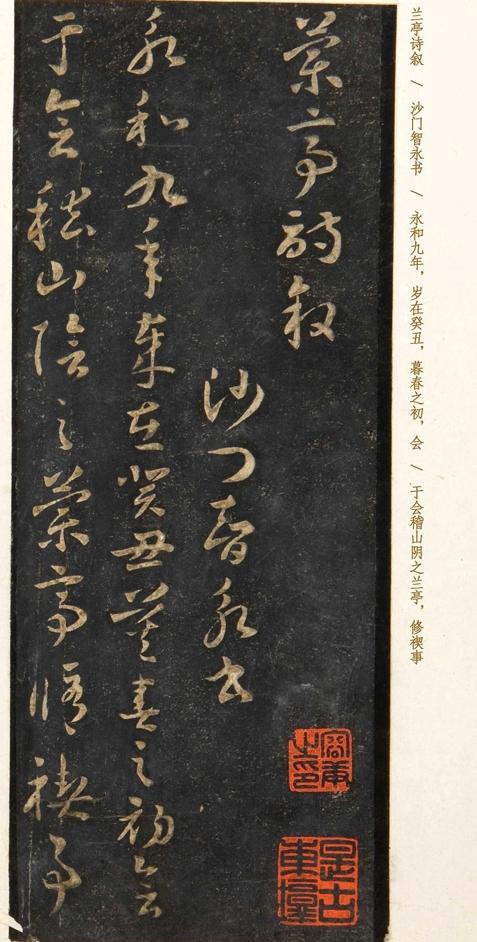 兰亭诗叙 \ 沙门智永书 \ 永和九年，岁在癸丑，暮春之初，会 \ 于会稽山阴之兰亭，修禊事
蘭亭詩叙
沙門智永書
永和九年歲在癸丑暮春之初會
于會稽山陰之蘭亭脩禊事